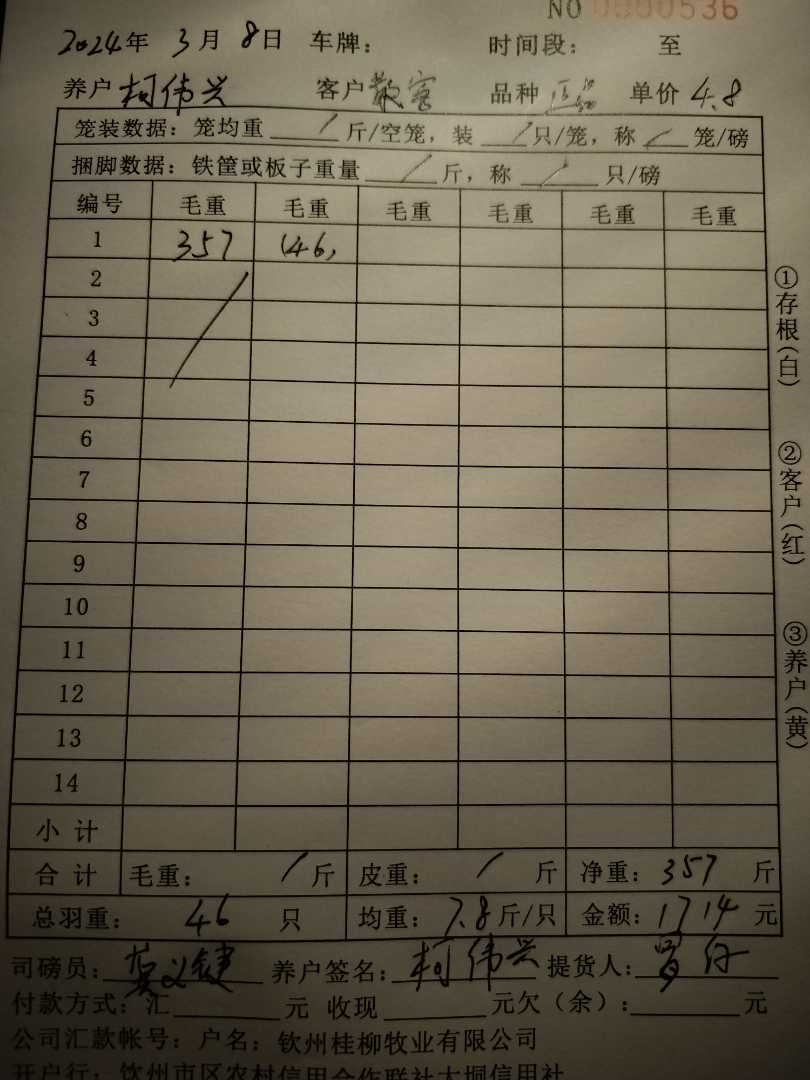 NO 0000536
2024年 3月 8日 车牌: 时间段: 至
养户 柯伟兴 客户 散客 品种 单价 4.8
笼装数据: 笼均重 / 斤/空笼, 装 / 只/笼, 称 / 笼/磅
捆脚数据: 铁筐或板子重量 / 斤, 称 / 只/磅
编号 毛重 毛重 毛重 毛重 毛重 毛重
1 357 (46)
2
3
4
5
6
7
8
9
10
11
12
13
14
小计
合计 毛重: / 斤 皮重: / 斤 净重: 357 斤
总羽重: 46 只 均重: 7.8 斤/只 金额: 1714 元
司磅员: 莫义键 养户签名: 柯伟兴 提货人:
付款方式: 汇 元 收现 元欠(余): 元
公司汇款帐号: 户名: 钦州桂柳牧业有限公司
开户行: 钦州市区农村信用合作联社大垌信用社
①存根(白)
②客户(红)
③养户(黄)